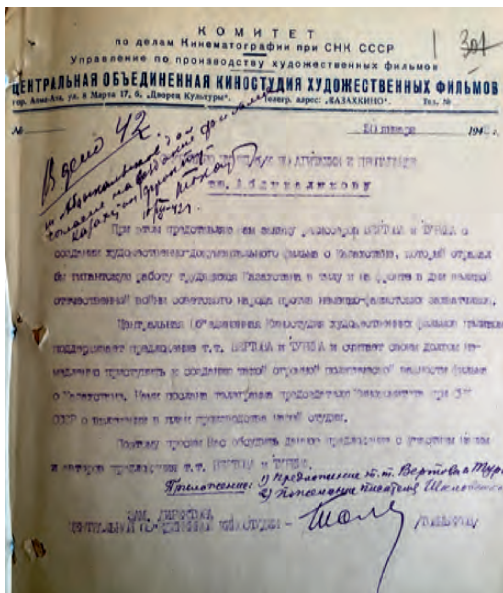 КОМИТЕТ
по делам Кинематографии при СНК СССР
301
Управление по производству художественных фильмов
ЦЕНТРАЛЬНАЯ ОБЪЕДИНЕННАЯ КИНОСТУДИЯ ХУДОЖЕСТВЕННЫХ ФИЛЬМОВ
гор. Алма-Ата, ул. 8 Марта 17, б. „Дворец Культуры“. Телегр. адрес: „КАЗАХКИНО“. Тел. №
№ 20 января 194
В дело 42
тов. Абдукаликову
При этом представляю вам заявку режиссеров ВЕРТОВА и ТУРИНА о
создании художественно-документального фильма о Казахстане, который отражал
бы гигантскую работу трудящихся Казахстана в тылу и на фронте в дни великой
отечественной войны советского народа против немецко-фашистских захватчиков.
Центральная Объединенная Киностудия художественных фильмов
поддерживает предложение т.т. ВЕРТОВА и ТУРИНА и считает своим долгом не-
медленно приступить к созданию такой огромной политической важности фильма
о Казахстане. Нами послана телеграмма председателю Кинокомитета при СНК
СССР о включении в план производства нашей студии.
Поэтому просим Вас обсудить данное предложение с участием
и авторов предложения т.т. ВЕРТОВА и ТУРИНА.
Приложение: 1) Предложение т.т. Вертова и Тур
2) писателя
ЗАМ. ДИРЕКТОРА
ЦЕНТРАЛЬНОЙ ОБЪЕДИНЕННОЙ КИНОСТУДИИ -